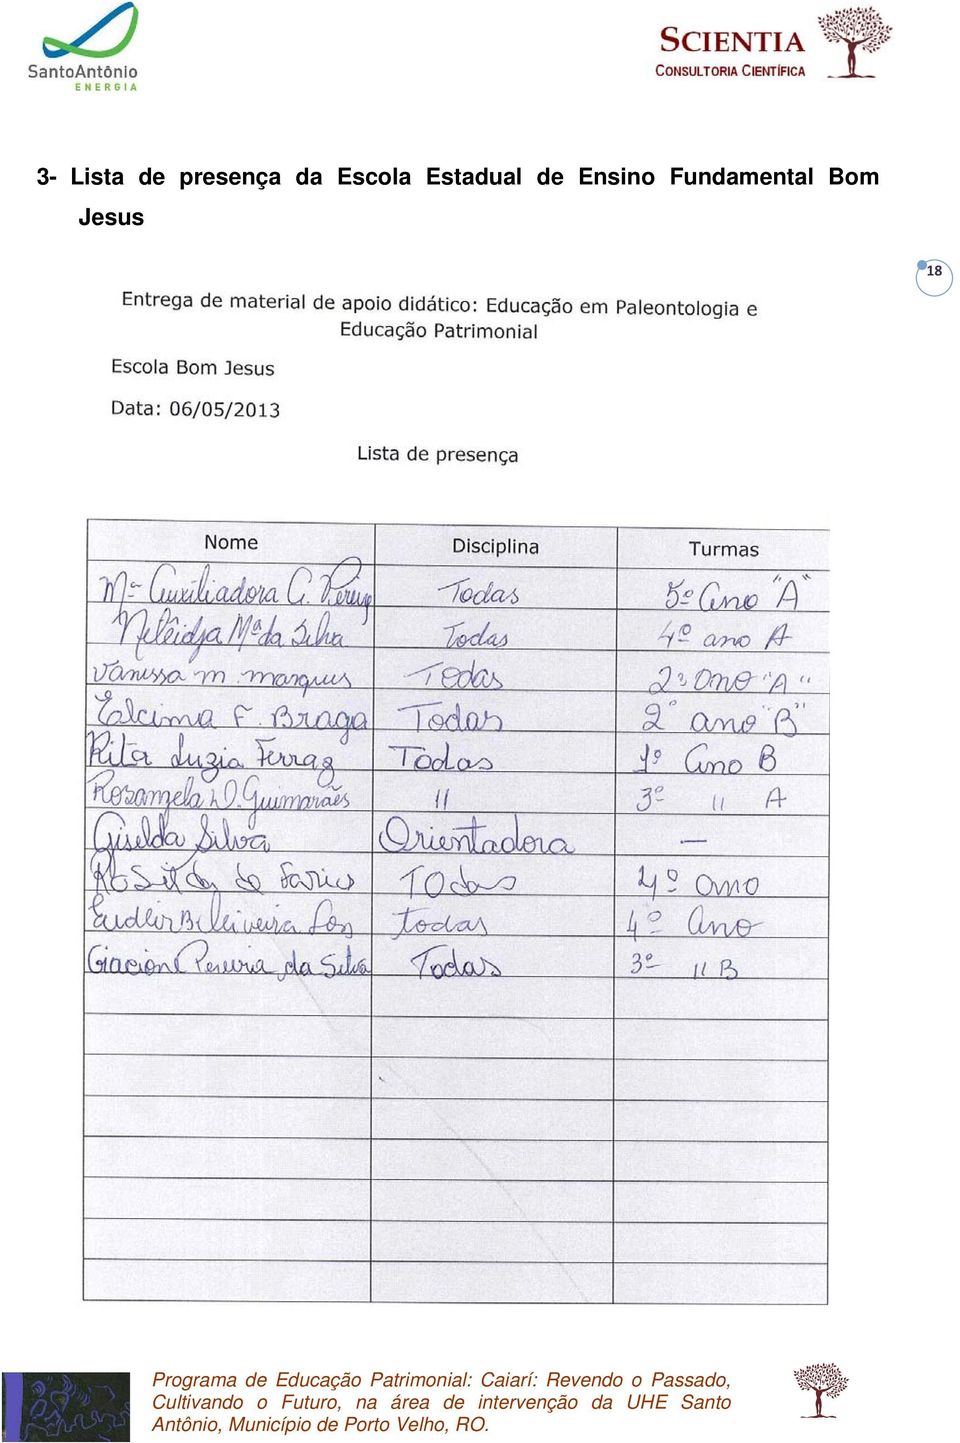 SantoAntônio
ENERGIA
SCIENTIA
CONSULTORIA CIENTÍFICA
3- Lista de presença da Escola Estadual de Ensino Fundamental Bom
Jesus
18
Entrega de material de apoio didático: Educação em Paleontologia e
Educação Patrimonial
Escola Bom Jesus
Data: 06/05/2013
Lista de presença
Nome Disciplina Turmas
Mª Auxiliadora G. Pereira Todas 5º Ano "A"
Neleidja Mª da Silva Todas 4º ano A
Vanessa m marques Todas 2º ano "A"
Elcima F. Braga Todas 2º ano "B"
Rita Luzia Ferraz Todas 1º Ano B
Rosangela D. Guimarães 11 3º 11 A
Giselda Silva Orientadora —
Todas 4º ano
todas 4º Ano
Giacione Pereira da Silva Todas 3º 11 B
Programa de Educação Patrimonial: Caiarí: Revendo o Passado,
Cultivando o Futuro, na área de intervenção da UHE Santo
Antônio, Município de Porto Velho, RO.